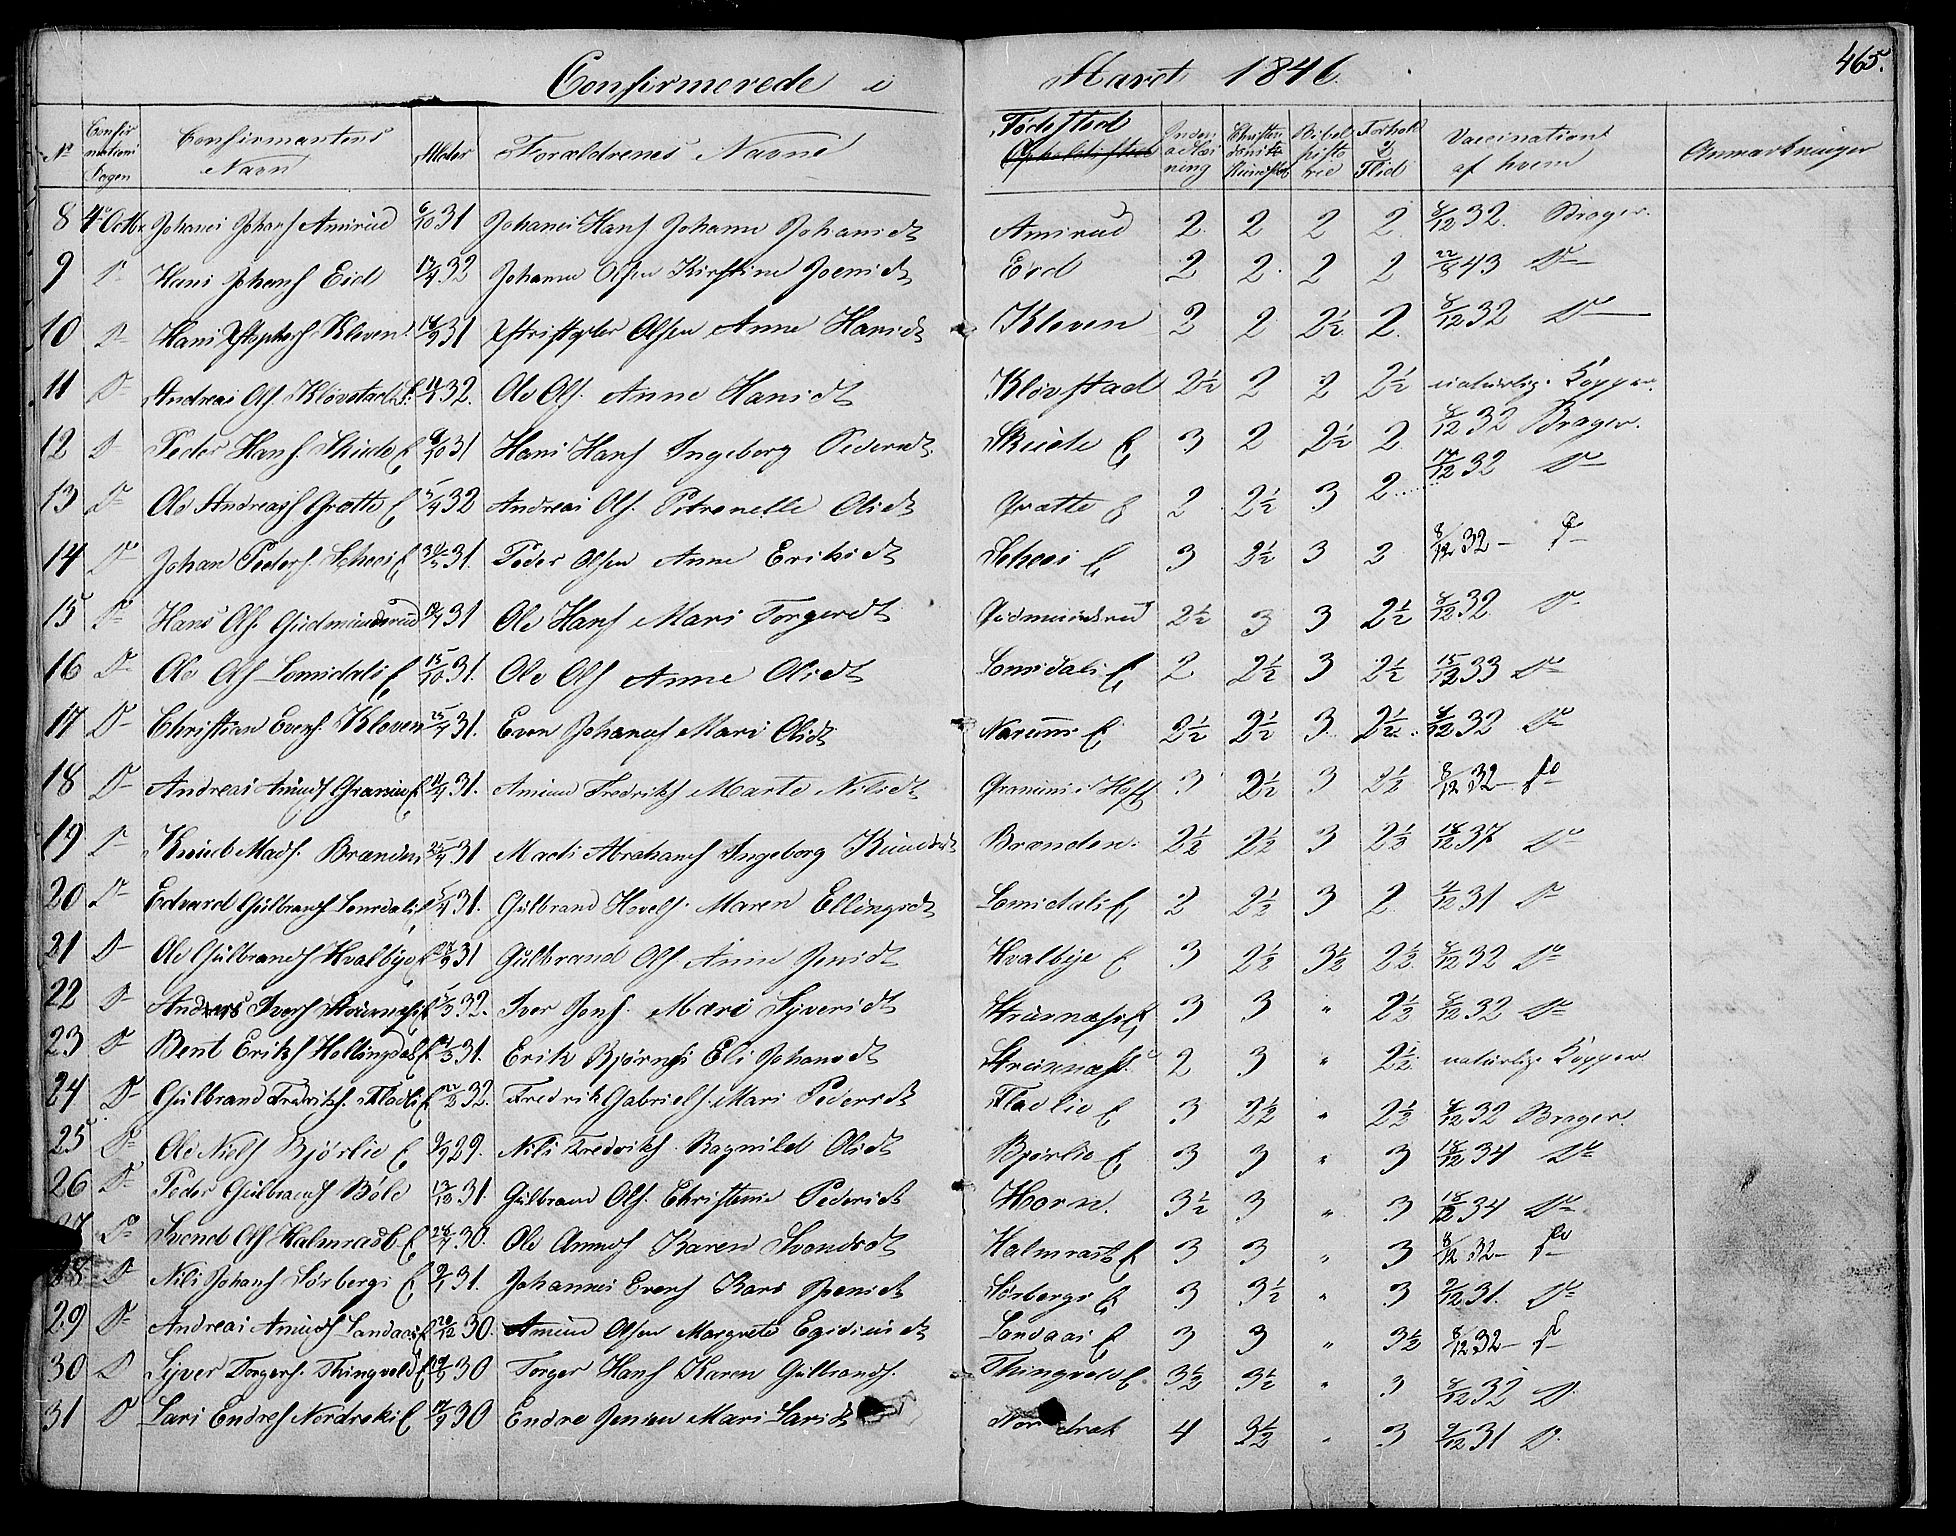 465.
Confirmerede i Aaret 1846.
No Confirmations Dagen Confirmantens Navn Alder Forældrenes Navne Fødested Opholdssted Inden ad Læsning Christendoms Kundskab Bibelhistorie Forhold og Flid Vaccination af hvem Anmærkninger
8 4 Octbr Johanes Johans Amrud 6/10 31 Johanes Hans Johanne Johansdt Amrud 2 2 2 2 8/12 32. Brager.
9 Do Hans Johans Eid 32 Johanne Olsen Kirstine Joensdt Eid 2 2 2 2 22/8 43 Do
10 Do Hans Kloven 31 Olsen Anne Hansdt Kloven 2 2 2½ 2 8/12 32 Do
11 Do Andreas Ols. Kløvstad 32. Ole Ols. Anne Hansdt Kløvstad 2½ 2 2 2½ naturlige Kopper.
12 Do Peder Hans. Skude E 31 Hans Hans Ingeborg Pedersdt Skude E 3 2 2½ 2 8/12 32 Brager.
13 Do Ole Andreas Grætte E 5/4 32 Andreas Ols. Petronelle Olsdt Grætte E 2 2½ 3 2 17/12 32 Do
14 Do Johan Peders. Scheei E 31. Peder Olsen Anne Eriksdt Scheei E 3 2½ 3 2 8/12 32 Do
15 Do Hans Ols. Gudmundsrud 31 Ole Hans Mari Torgersdt Gudmundsrud 2½ 3 3 2½ 8/12 32 Do
16 Do Ole Ols Lomsdals E 15/10 31. Ole Ols Anne Olsdt Lomsdals E 2 2½ 3 2½ 15/12 33 Do
17 Do Christian Evens. Kloven 31. Even Johanes Mari Olsdt Narums E 2½ 2½ 3 2½ 8/12 32 Do
18 Do Andreas Amunds Granum E 31. Amund Fredriks Marte Nilsdt Granums 3 2½ 3 2½ 8/12 32 Do
19 Do Knud Mads. Brænden 31 Mads Abrahams Ingeborg Knudsdt Brænden. 2½ 2½ 3 2½ 18/12 37 Do
20 Do Edvard Gulbrands Lomsdals E 31. Gulbrand Hovels. Maren Ellingsdt Lomsdals E 2 2½ 3 2 31 Do
21 Do Ole Gulbrands Hvalbye E 31 Gulbrand Ols Anne Jensdt Hvalbye E 3 2½ 3½ 2½ 8/12 32 Do
22 Do Anders Ivers E 32. Iver Jons. Mari Syversdt E 3 3 " 2½ 8/12 32 Do
23 Do Bent Eriks Hallingdal E 31. Erik Bjørns Eli Johansdt 2 3 " 2½ naturlige Kopper
24 Do Gulbrand Fredriks. Fladlie E 32. Fredrik Gabriels. Mari Pedersdt Fladlie E 3 2½ " 2½ 8/12 32 Brager.
25 Do Ole Niels Bjørlie E 9/9 29. Nils Fredriks. Ragnild Olsdt Bjørlie E 3 3 " 3 18/12 34 Do
26 Do Peder Gulbrands Bøle 13/10 31. Gulbrand Ols. Christense Pedersdt Horn. 3½ 3 " 3 18/12 34 Do
27 Do Svend Ols Halmrast E 30. Ole Amunds Karen Svendsdt Halmrast E 3 3 " 3 8/12 32 Do
28 Do Nils Johans Sørbergs E 31. Johannes Evens Kari Jensdt Sørbergs E 3 3½ " 3 31. Do
29 Do Andreas Amunds Landaas E 20/12 30. Amund Olsen Margrete Egidiusdt Landaas E 3 3 " 3½ 8/12 32 Do
30 Do Syver Torgers. Thingvold E 30 Torger Hans Karen Gulbrands. Thingvold E 3½ 3½ " 3 8/12 32 Do
31 Do Lars Endres Nordræks E 30 Endre Jensen Mari Larsdt Nordræk 4 3½ " 3 31 Do